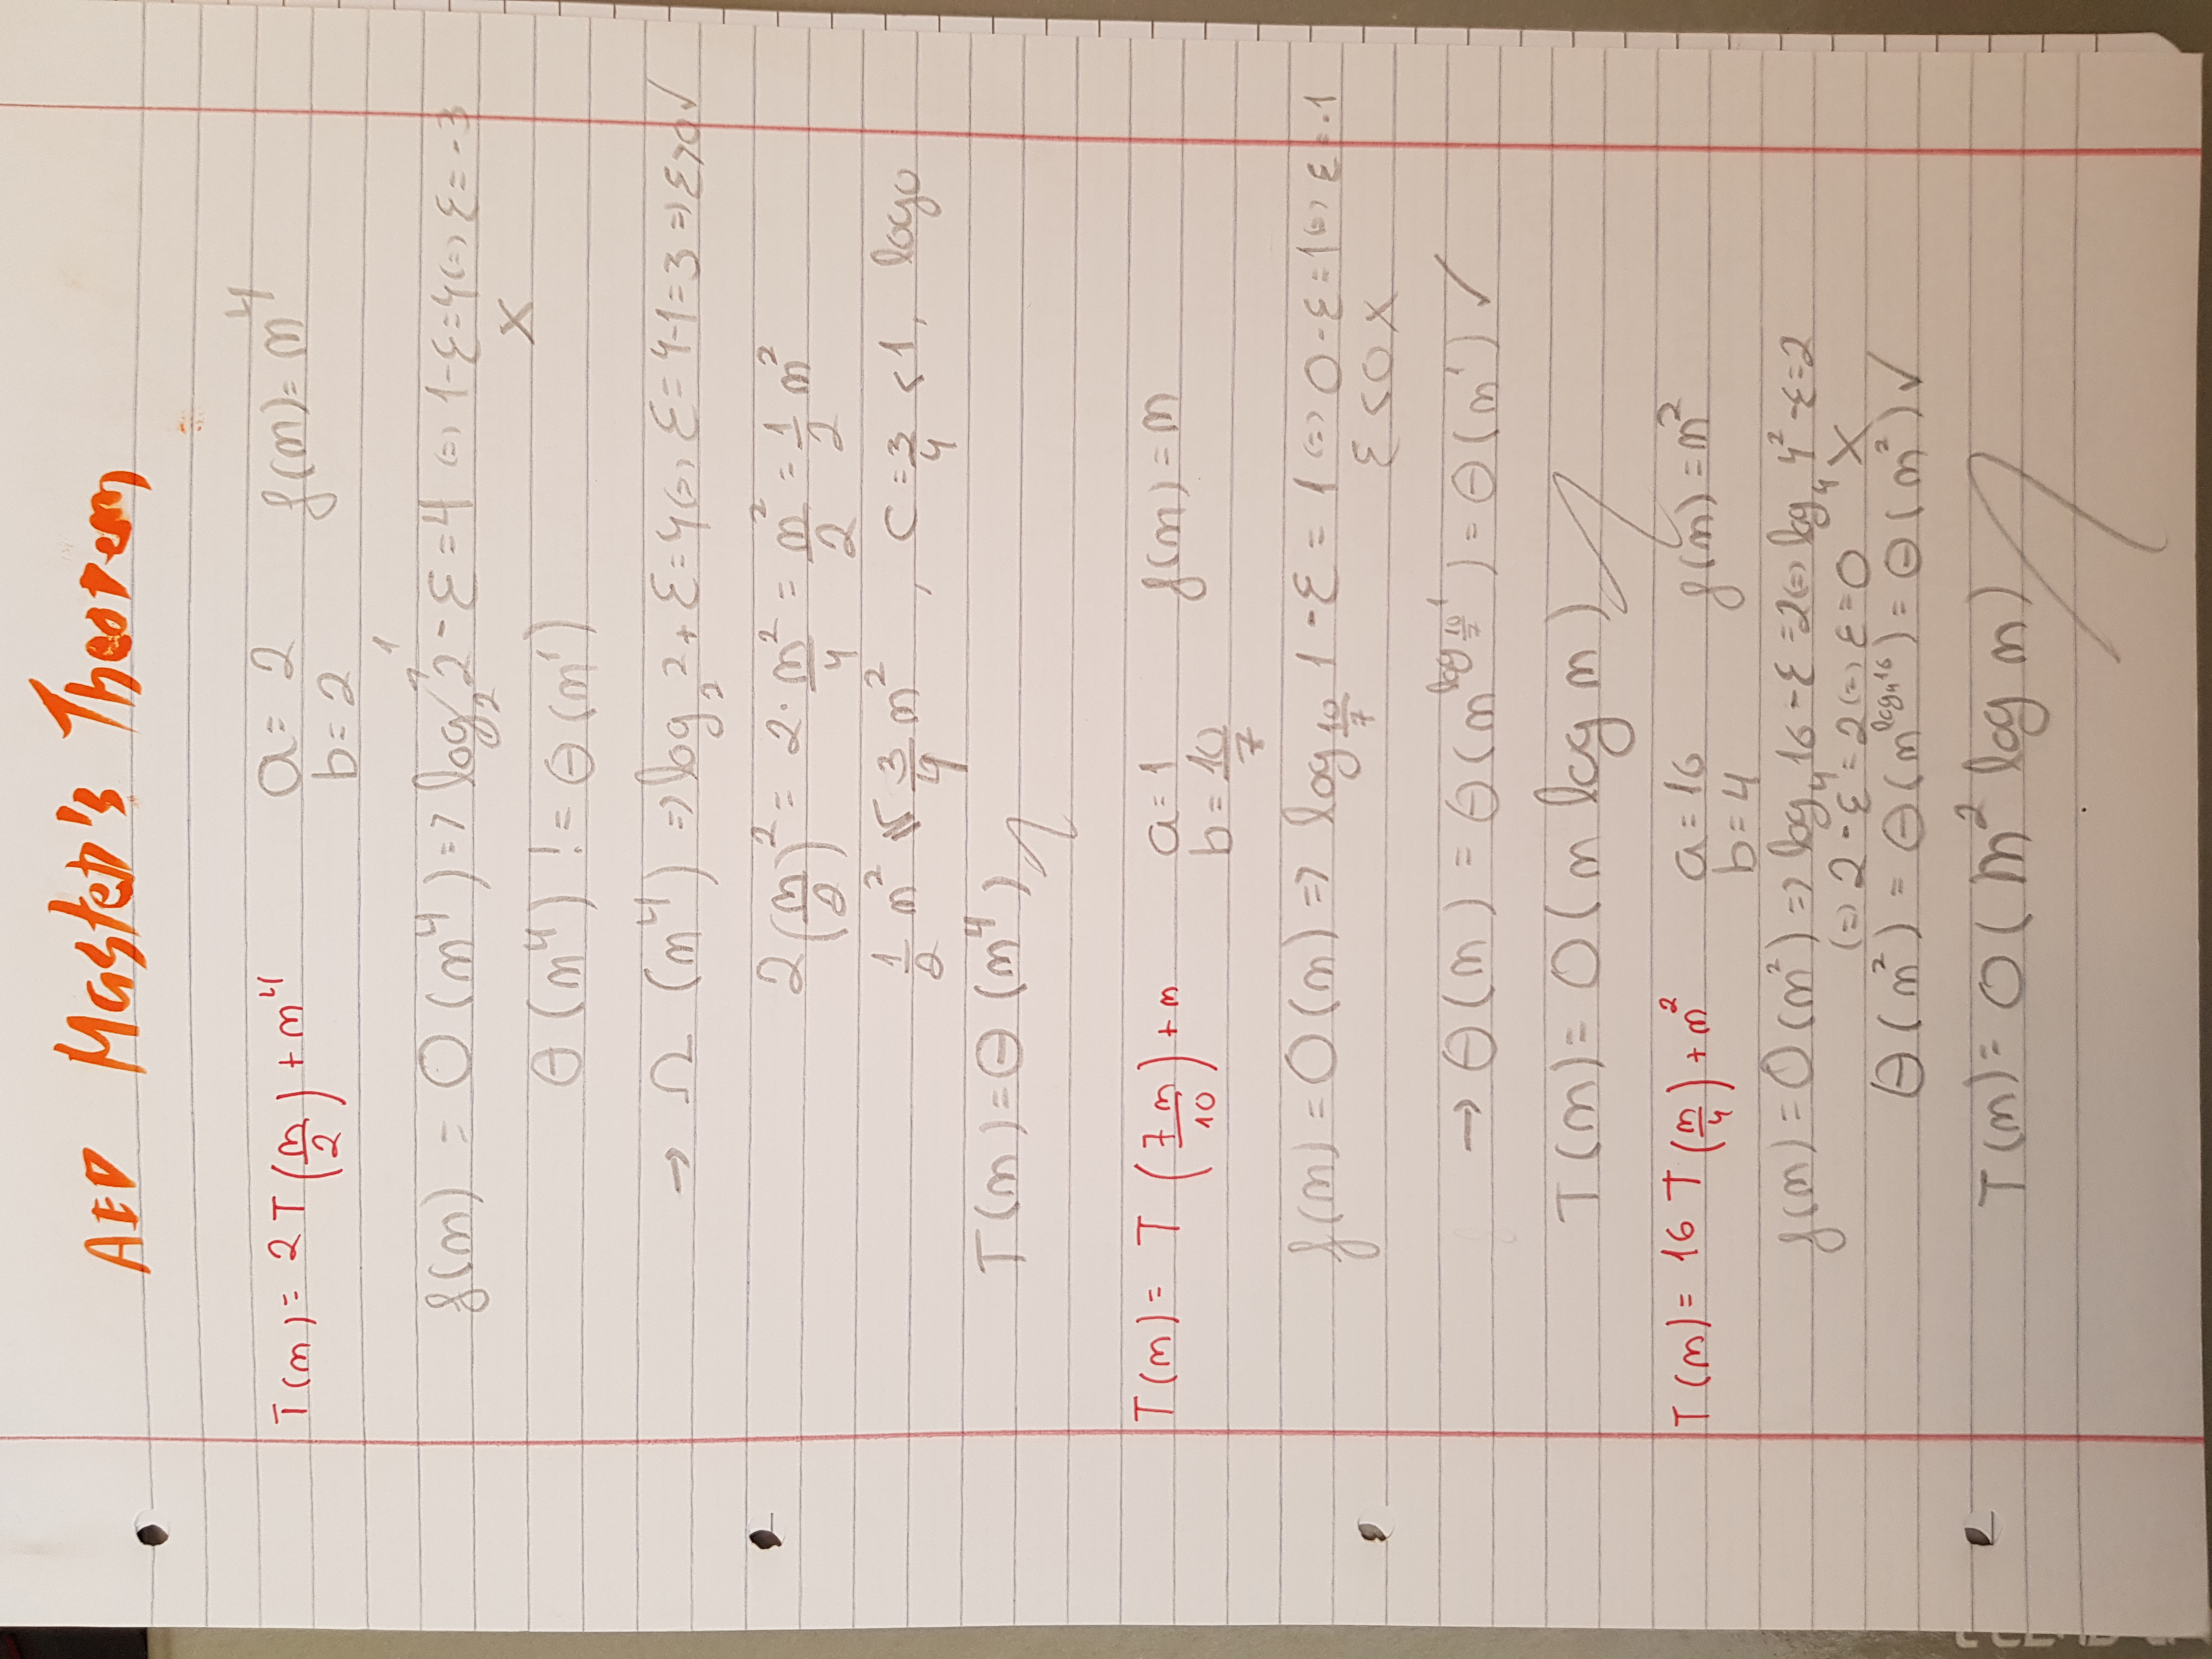 AED Master's Theorem
T(m) = 2T(m/2) + m⁴ a = 2 f(m) = m⁴
b = 2
1
f(m) = O(m⁴) => log₂2 - ε = 4 (=) 1 - ε = 4 (=) ε = -3
X
Θ(m⁴) != Θ(m¹)
→ Ω(m⁴) => log₂2 + ε = 4 (=) ε = 4-1 = 3 => ε > 0 ✓
2(m/2)² = 2·m²/4 = m²/2 = 1/2 m²
1/2 m² ≤ 3/4 m², C = 3/4 < 1, logo
T(m) = Θ(m⁴)
T(m) = T(7m/10) + m a = 1 f(m) = m
b = 10/7
f(m) = O(m) => log_{10/7} 1 - ε = 1 (=) 0 - ε = 1 (=) ε = -1
ε < 0 X
→ Θ(m) = Θ(m^{log_{10/7} 1}) = Θ(m¹) ✓
T(m) = O(m log m)
T(m) = 16T(m/4) + m² a = 16 f(m) = m²
b = 4
f(m) = O(m²) => log₄16 - ε = 2 (=) log₄4² - ε = 2
(=) 2 - ε = 2 (=) ε = 0 X
Θ(m²) = Θ(m^{log₄16}) = Θ(m²) ✓
T(m) = O(m² log m)